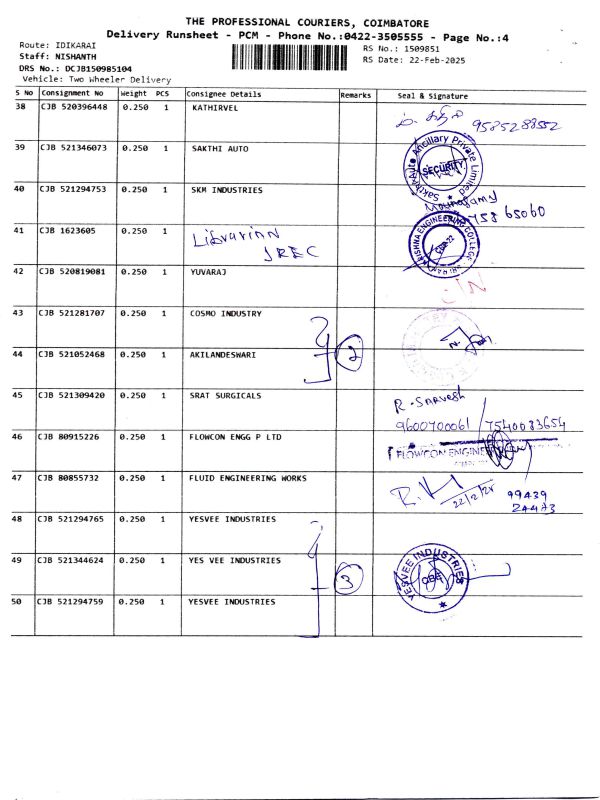 THE PROFESSIONAL COURIERS, COIMBATORE
Delivery Runsheet - PCM - Phone No.:0422-3505555 - Page No.:4
Route: IDIKARAI
Staff: NISHANTH
DRS No.: DCJB150985104
Vehicle: Two Wheeler Delivery
RS No.: 1509851
RS Date: 22-Feb-2025
S No Consignment No Weight PCS Consignee Details Remarks Seal & Signature
38 CJB 520396448 0.250 1 KATHIRVEL 9585288552
39 CJB 521346073 0.250 1 SAKTHI AUTO
Sakthi Auto Ancillary Private Limited
SECURITY
40 CJB 521294753 0.250 1 SKM INDUSTRIES
75865060
41 CJB 1623605 0.250 1 Librarian
KRISHNA ENGINEERING COLLEGE
42 CJB 520819081 0.250 1 YUVARAJ
43 CJB 521281707 0.250 1 COSMO INDUSTRY
44 CJB 521052468 0.250 1 AKILANDESWARI 2
45 CJB 521309420 0.250 1 SRAT SURGICALS R. Sarvesh
9600700061 / 7540083654
46 CJB 80915226 0.250 1 FLOWCON ENGG P LTD
FLOWCON ENGINE
47 CJB 80855732 0.250 1 FLUID ENGINEERING WORKS
22/2/25 99439
24473
48 CJB 521294765 0.250 1 YESVEE INDUSTRIES
49 CJB 521344624 0.250 1 YES VEE INDUSTRIES 3
YESVEE INDUSTRIES
CBE
50 CJB 521294759 0.250 1 YESVEE INDUSTRIES